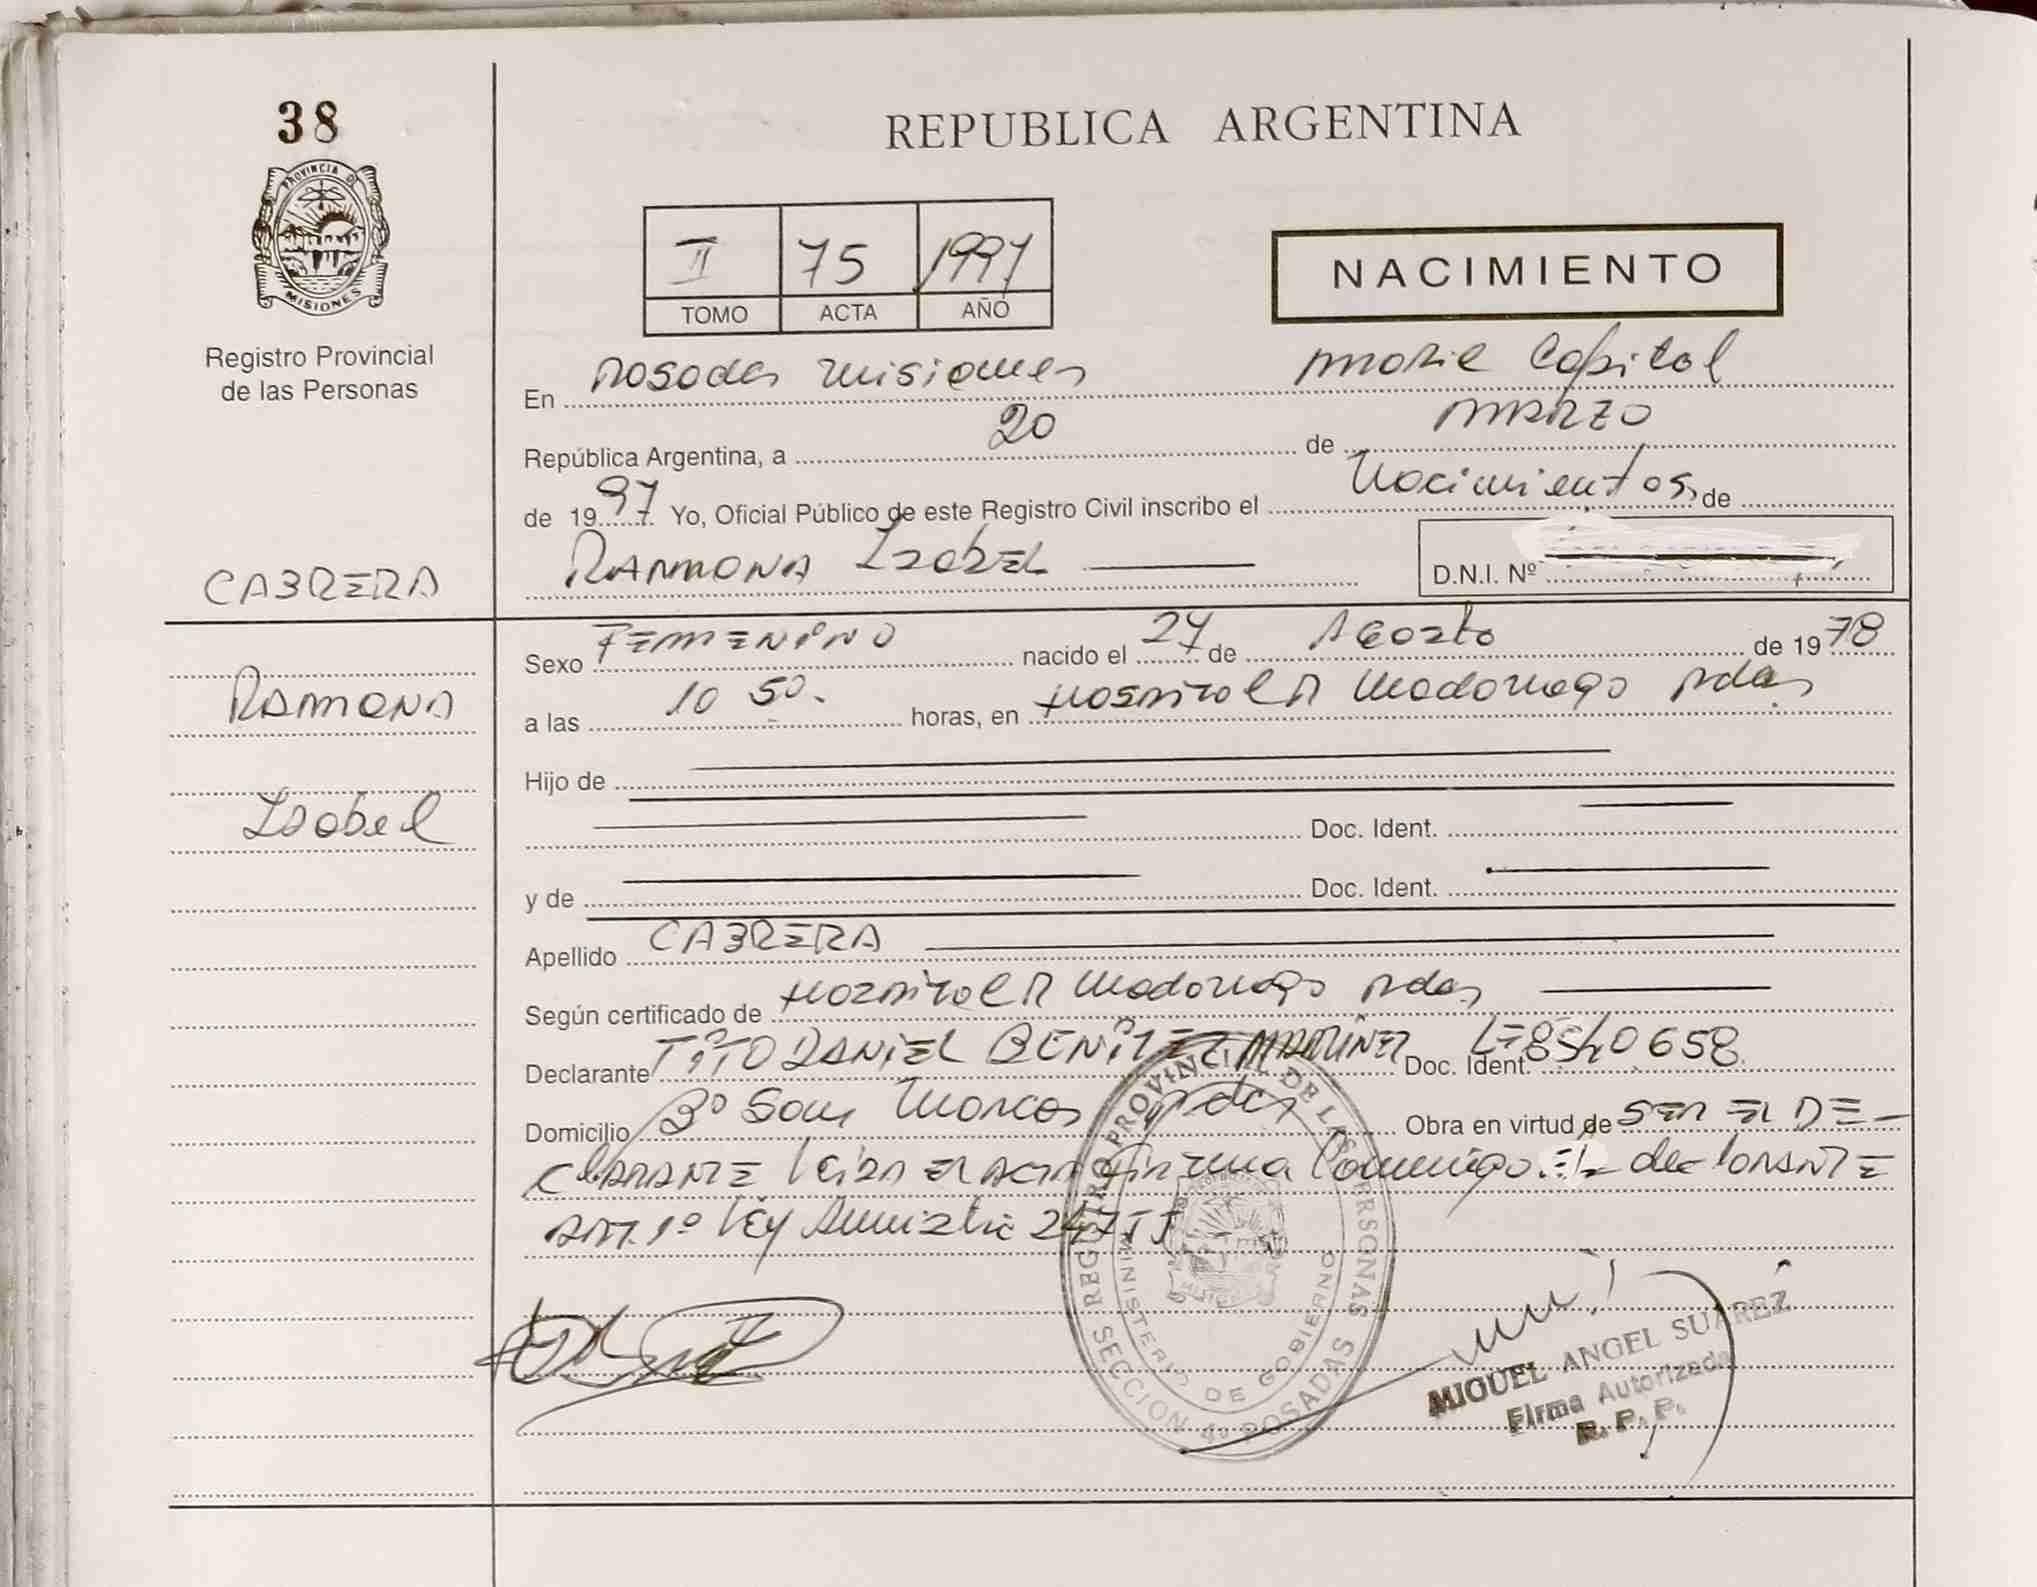 38
REPUBLICA ARGENTINA
PROVINCIA DE
MISIONES
Registro Provincial
de las Personas
II 75 1997
TOMO ACTA AÑO
NACIMIENTO
En Posadas Misiones Capital
República Argentina, a 20 de MARZO
de 1997 Yo, Oficial Público de este Registro Civil inscribo el Nacimientos de
CABRERA
RAMONA Isabel
D.N.I. Nº
Sexo FEMENINO nacido el 27 de Agosto de 1978
RAMONA
a las 10 50. horas, en Hospital R Madariaga Pdas
Hijo de
Isabel
Doc. Ident.
y de Doc. Ident.
Apellido CABRERA
Según certificado de Hospital R Madariaga Pdas
Declarante TITO DANIEL BENITEZ MARTINEZ Doc. Ident. LE 8540658
Domicilio Bº San Marcos Pdas Obra en virtud de SER EL DE-
CLARANTE leida el acta firma Conmigo EL declaRANTE
ART. 1º Ley Amnistia 24755
REGISTRO PROVINCIAL DE LAS PERSONAS
MINISTERIO DE GOBIERNO
SECCION 4º POSADAS
MIGUEL ANGEL SUAREZ
Firma Autorizada
R. P. P.